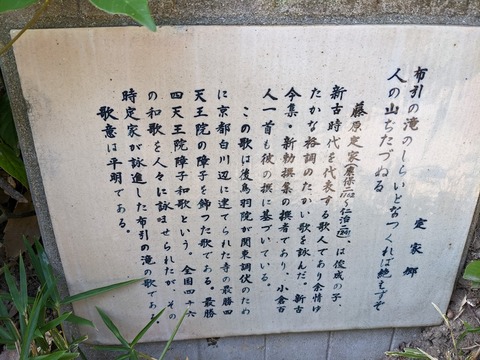 布引の滝のしらいとなつくれば絶えずぞ
人の山ぢたづぬる
定家郷
藤原定家(応保二(1162)～仁治二(1241))、は俊成の子、
新古時代を代表する歌人であり余情ゆ
たかな格調のたかい歌を詠んだ。新古
今集・新勅撰集の撰者であり、小倉百
人一首も彼の撰に基づいている。
この歌は後鳥羽院が関東調伏のため
に京都白川辺に建てられた寺の最勝四
天王院の障子を飾つた歌である。最勝
四天王院障子和歌という。全国四十六
の和歌を人々に詠ませられたが、その
時定家が詠進した布引の滝の歌である。
歌意は平明である。